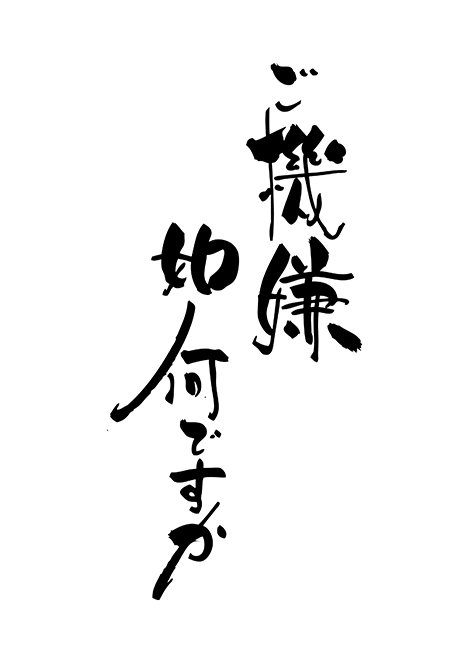 ご機嫌
如何ですか